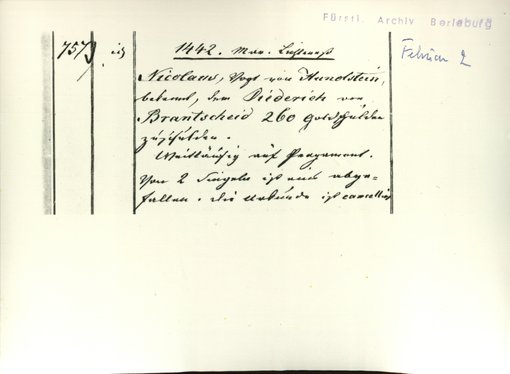 Fürstl. Archiv Berleburg
Februar 2
757
1442. Mar. Lichtmeß
Nicolaus, Vogt von Hunolstein,
bekennt, dem Diederich von
Brantscheid 260 Goldgulden
zu schulden.
Weitläufig auf Pergament.
Von 2 Siegeln ist eins abge-
fallen. Die Urkunde ist cancellirt